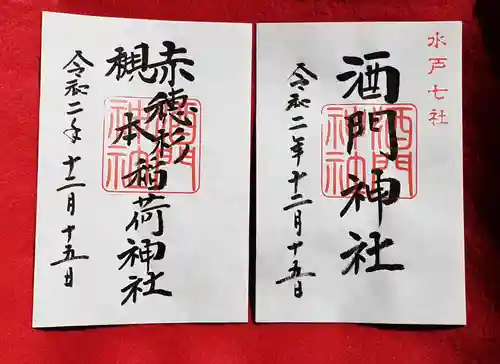 水戸七社
酒門神社
令和二年十二月十五日
赤穂杉本稲荷神社
令和二年十二月十五日